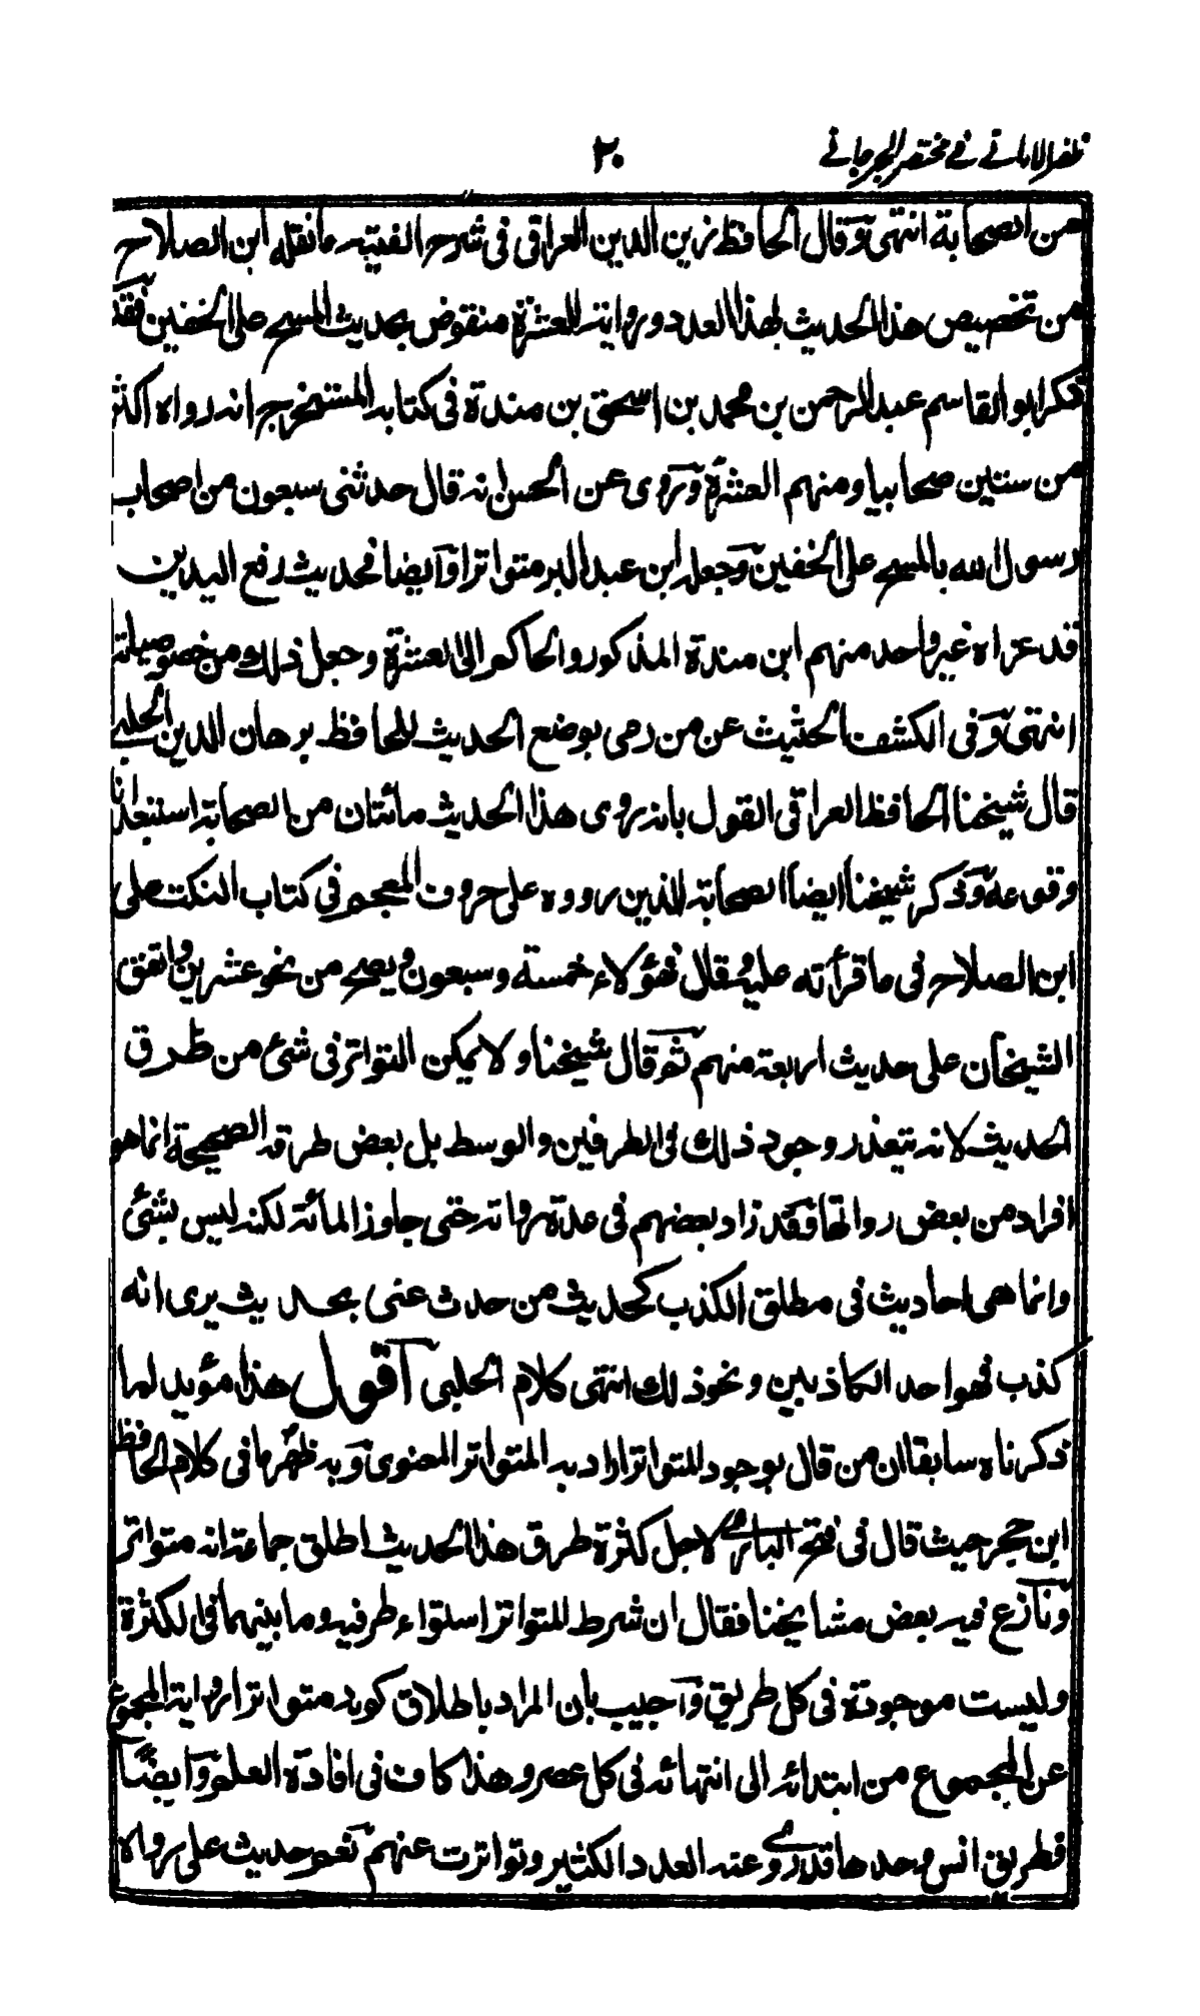 ظفر الامانى فى مختصر الجرجانى
٢٠
من الصحابة انتهى وقال الحافظ زين الدين العراقى فى شرح الفيته ما نقله ابن الصلاح
من تخصيص هذا الحديث لهذا العدد ورواية العشرة منقوض بحديث المسح على الخفين فقد
ذكر ابو القاسم عبد الرحمن بن محمد بن اسحق بن مندة فى كتابه المستخرج انه رواه اكثر
من ستين صحابيا ومنهم العشرة وروى عن الحسن انه قال حدثنى سبعون من اصحاب
رسول الله بالمسح على الخفين وجعله ابن عبد البر متواترا وايضا فحديث رفع اليدين
قد عزاه غير واحد منهم ابن مندة المذكور والحاكم الى العشرة وجعل ذلك من خصوصياته
انتهى وفى الكشف الحثيث عن من رمى بوضع الحديث للحافظ برهان الدين الحلبى
قال شيخنا الحافظ العراقى القول بانه روى هذا الحديث مائتان من الصحابة استبعد انا
وقوعه وذكر شيخنا ايضا الصحابة الذين رووه على حروف المعجم فى كتاب النكت على
ابن الصلاح فى ما قرأته عليه وقال فهؤلاء خمسة وسبعون ويصح من نحو عشرين واتفق
الشيخان على حديث اربعة منهم ثم قال شيخنا ولا يمكن التواتر فى شئ من طرق
الحديث لانه يتعذر وجود ذلك فى الطرفين والوسط بل بعض طرقه الصحيحة انما هو
افراد من بعض رواتها فقد زاد بعضهم فى عدة رواته حتى جاوز المائة لكنه ليس بشئ
وانما هى احاديث فى مطلق الكذب كحديث من حدث عنى بحديث يرى انه
كذب فهو احد الكاذبين ونحو ذلك انتهى كلام الحلبى اقول هذا مؤيد لما
ذكرناه سابقا ان من قال بوجود المتواتر اراد به المتواتر المعنوى وبه ظهر ما فى كلام الحافظ
ابن حجر حيث قال فى فتح البارى لاجل كثرة طرق هذا الحديث اطلق جماعة انه متواتر
ونازع فيه بعض مشايخنا فقال ان شرط المتواتر استواء طرفيه وما بينهما فى الكثرة
وليست موجودة فى كل طريق واجيب بان المراد باطلاق كونه متواترا رواية المجموع
عن المجموع من ابتدائه الى انتهائه فى كل عصر وهذا كاف فى افادة العلم وايضًا
فطريق انس وحدها قد روى عنه العدد الكثير وتواترت عنهم نعم حديث على رواه